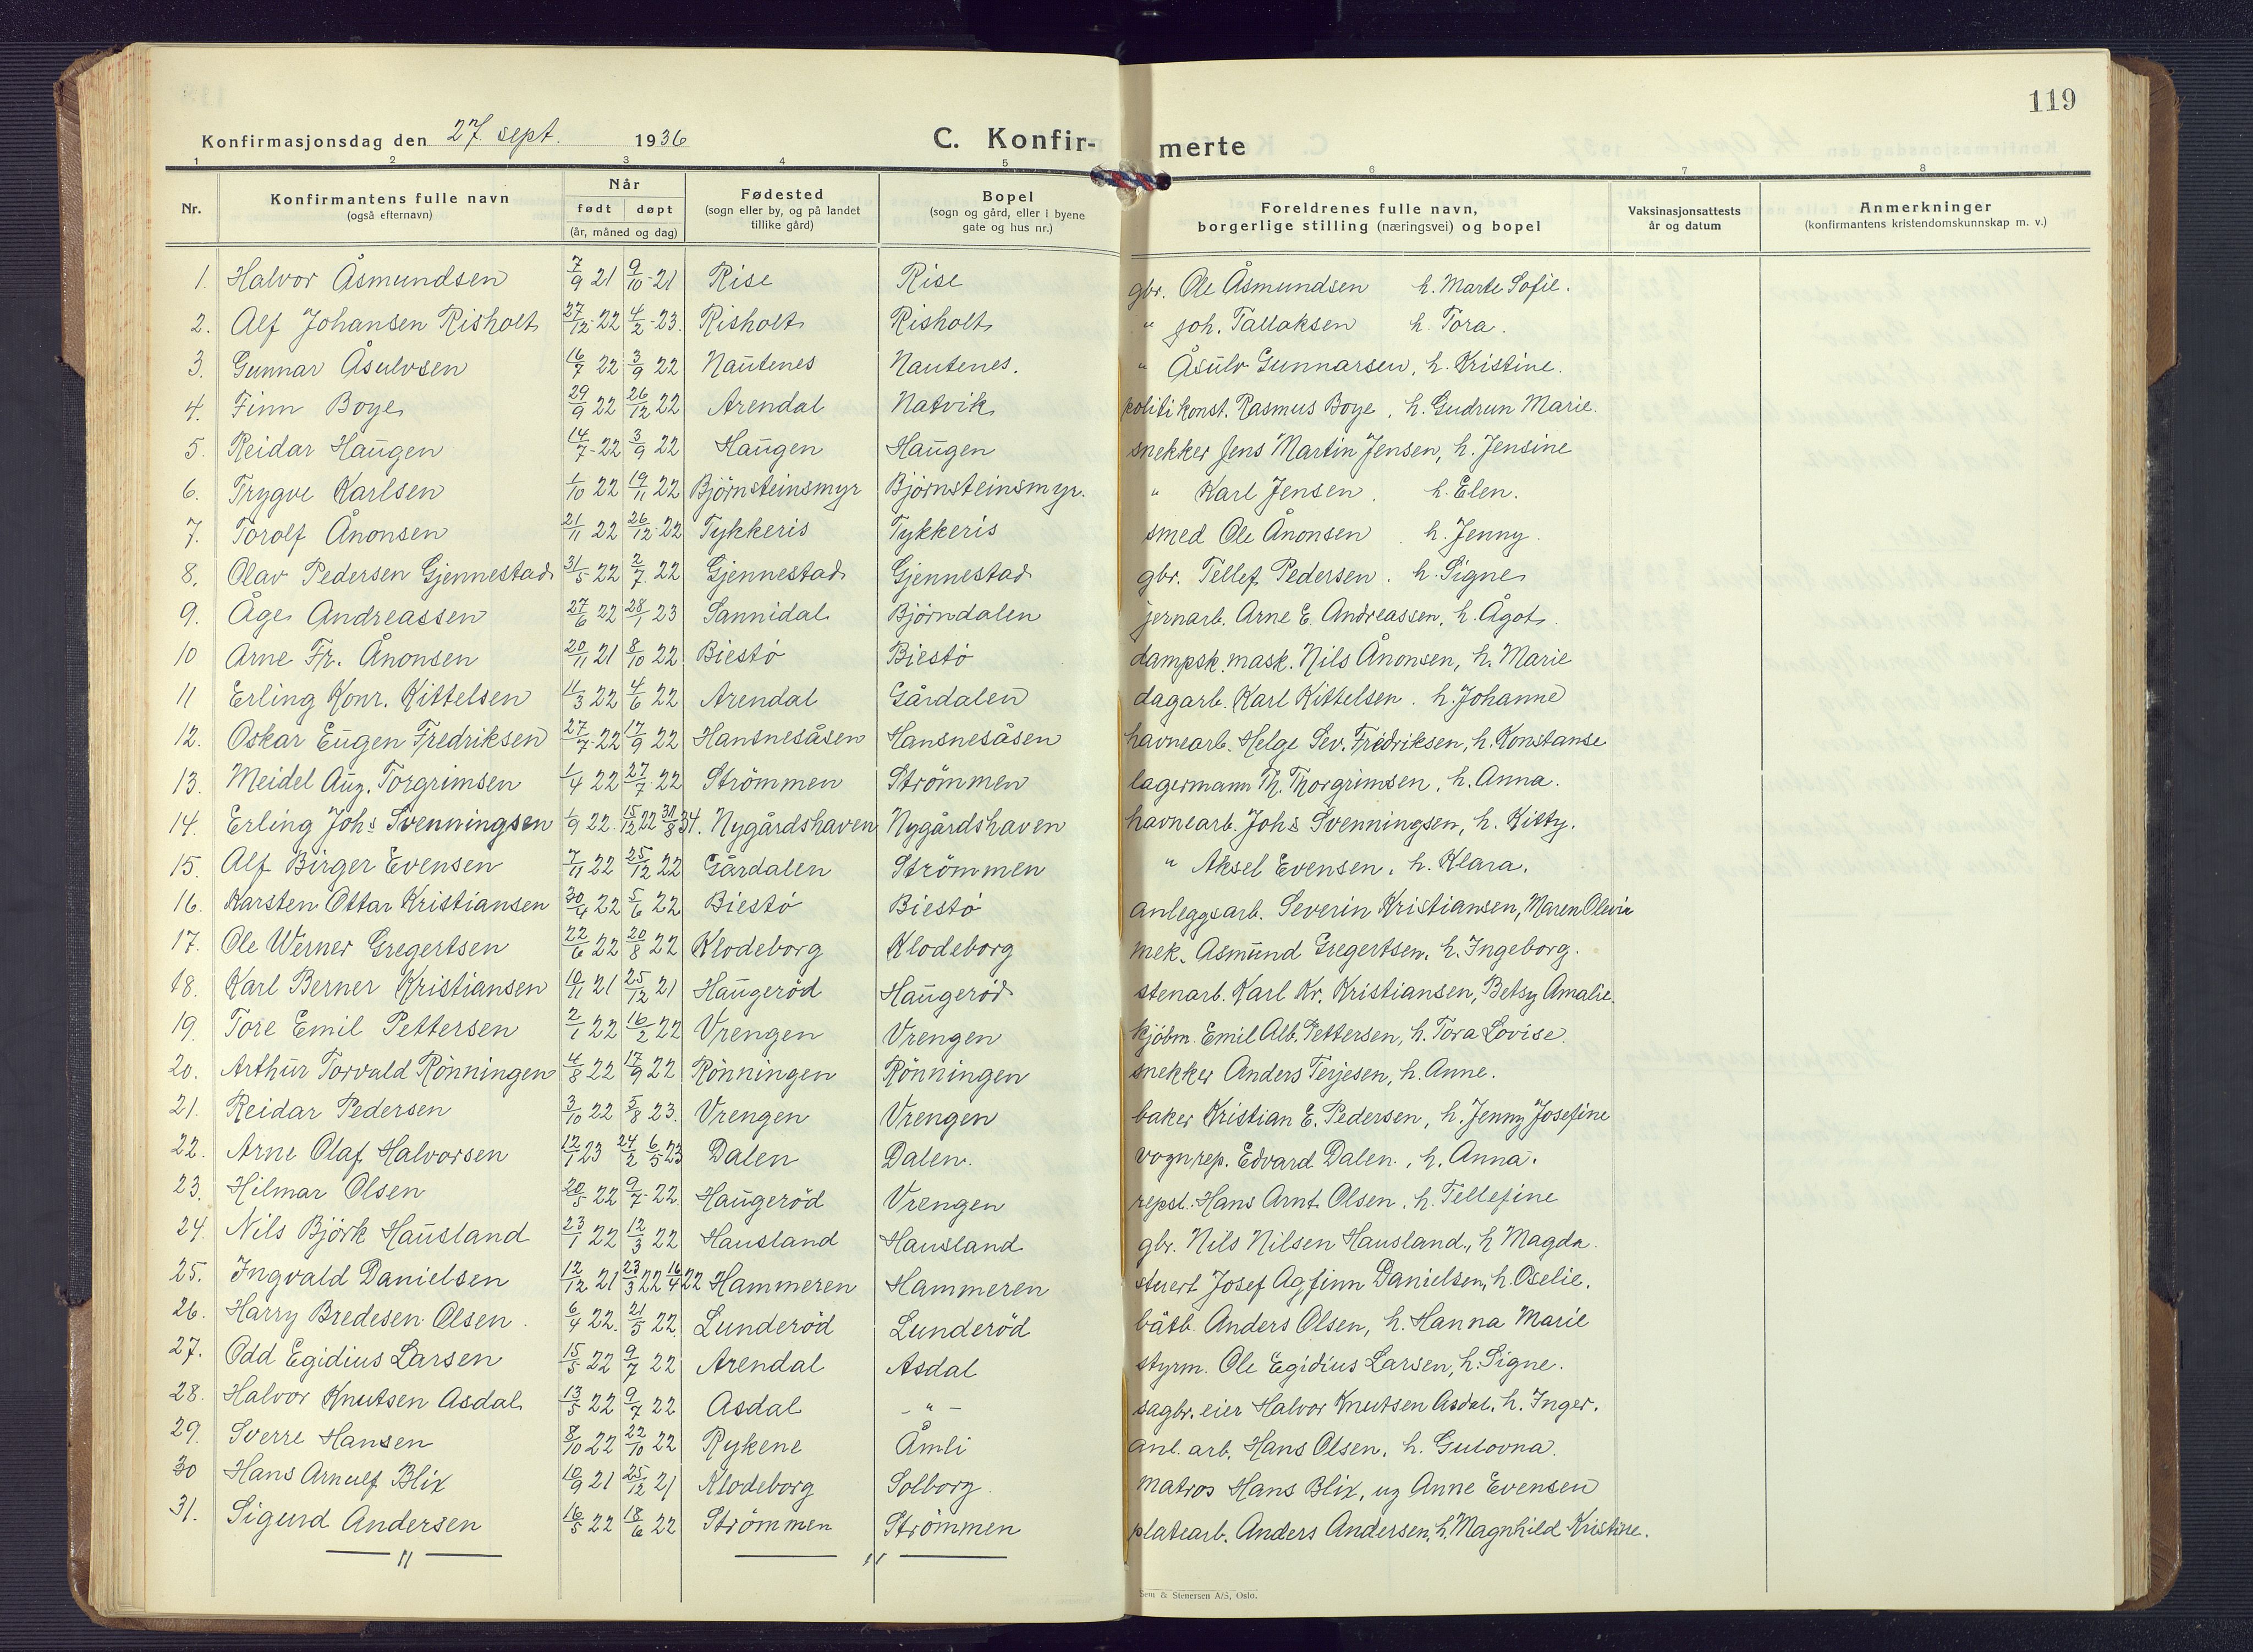 119
Konfirmasjonsdag den 27. sept. 1936 C. Konfir- merte
1 2 3 4 5 6 7 8
Nr. Konfirmantens fulle navn (også efternavn) Når født døpt (år, måned og dag) Fødested (sogn eller by, og på landet tillike gård) Bopel (sogn og gård, eller i byene gate og hus nr.) Foreldrenes fulle navn, borgerlige stilling (næringsvei) og bopel Vaksinasjonsattests år og datum Anmerkninger (konfirmantens kristendomskunnskap m. v.)
1. Halvor Åsmundsen 7/9 21 9/10-21 Rise Rise gbr. Ole Åsmundsen h. Marte Sofie.
2. Alf Johansen Risholt 27/12-22 4/2-23. Risholt Risholt " Joh. Tallaksen h. Tora.
3. Gunnar Åsulvsen 16/7 22 3/9 22 Nautenes Nautenes. " Åsulv Gunnarsen, h. Kristine.
4. Finn Boye 29/9 22 26/12 22 Arendal Natvik politikonst. Rasmus Boye, h. Gudrun Marie.
5. Reidar Haugen 14/7-22 3/9 22 Haugen Haugen snekker Jens Martin Jensen, h. Jensine
6. Trygve Karlsen 1/10 22 19/11 22 Björnsteinsmyr Björnsteinsmyr. " Karl Jensen. h. Elen.
7. Torolf Ånonsen 21/11 22 26/12-22 Tykkeris Tykkeris smed Ole Ånonsen. h. Jenny.
8. Olav Pedersen Gjennestad 31/5 22 2/7. 22 Gjennestad Gjennestad gbr. Tellef Pedersen. h. Signe
9. Åge Andreassen 27/6 22 28/1 23 Sannidal Björndalen jernarb. Arne E. Andreassen, h. Ågot.
10 Arne Fr. Ånonsen 20/11 21 8/10 22 Biestö Biestö dampsk. mask. Nils Ånonsen, h. Marie
11 Erling Konr. Kittelsen 4/6 22 Arendal Gårdalen dagarb. Karl Kittelsen. h. Johanne
12. Oskar Eugen Fredriksen 27/7-22 17/9 22 Hansnesåsen Hansnesåsen havnearb. Helge Sev. Fredriksen, h. Konstanse
13. Meidel Aug. Torgrimsen 1/4 22 27/7-22 Strömmen Strömmen lagermann Th. Thorgrimsen, h. Anna.
14. Erling Johs Svenningsen 1/9 22. 15/12 22 31/8 34. Nygårdshaven Nygårdshaven havnearb. Johs Svenningsen, h. Kitty.
15. Alf Birger Evensen 7/11 22 25/12 22 Gårdalen Strömmen " Aksel Evensen. h. Klara.
16. Karsten Ottar Kristiansen 30/4 22 5/6 22 Biestö Biestö anleggsarb. Severin Kristiansen, Maren Olevia
17. Ole Werner Gregertsen 22/6 22 20/8 22 Klodeborg Klodeborg mek. Asmund Gregertsen, h. Ingeborg.
18. Karl Berner Kristiansen 10/11 21 25/12 21 Haugeröd Haugeröd stenarb. Karl Kr. Kristiansen, Betsy Amalie.
19. Tore Emil Pettersen 2/1 22 16/2 22 Vrengen Vrengen kjöbm. Emil Alb. Pettersen, h. Tora Lovise.
20. Arthur Torvald Rönningen 4/8 22 17/9 22 Rönningen Rönningen snekker Anders Terjesen, h. Anne.
21. Reidar Pedersen 3/10 22 5/8 23. Vrengen Vrengen baker Kristian E. Pedersen, h. Jenny Josefine
22. Arne Olaf Halvorsen 12/1 23 24/2 6/5 23 Dalen Dalen. vognrep. Edvard Dalen., h. Anna.
23. Hilmar Olsen 20/5 22 9/7-22. Haugeröd Vrengen repsl. Hans Arnt Olsen, h. Tellefine
24. Nils Björk Hausland 23/1 22 12/3 22 Hausland Hausland gbr. Nils Nilsen Hausland, h Magda.
25. Ingvald Danielsen 12/12 21 23/3 22 16/4 22 Hammeren Hammeren stuert Josef Agfinn Danielsen, h. Oselie.
26. Harry Bredesen Olsen. 6/4 22. 21/5 22. Lunderöd Lunderöd båtb. Anders Olsen, h. Hanna Marie
27. Odd Egidius Larsen 15/5 22 9/7 22 Arendal Asdal styrm. Ole Egidius Larsen, h. Signe.
28. Halvor Knutsen Asdal 13/5 22 9/7 22 Asdal - " - sagbr. eier Halvor Knutsen Asdal, h. Inger.
29. Sverre Hansen 8/10 22 22/10 22 Rykene Åmli anl. arb. Hans Olsen, h. Gulovna.
30 Hans Arnulf Blix 10/9 21 25/12 21 Klodeborg Solborg matros Hans Blix, ug Anne Evensen
31. Sigurd Andersen 16/5 22 18/6 22 Strömmen Strömmen platearb. Anders Andersen, h. Magnhild Kristine.
Sem & Stenersen A/S, Oslo.